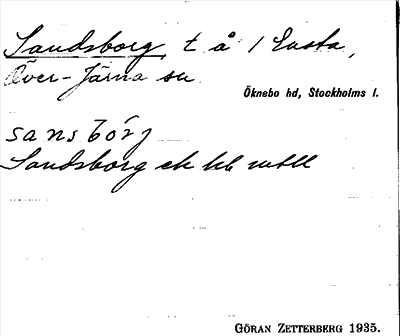 Sandsborg, t å 1 Ensta,
Över-Järna sn
Öknebo hd, Stockholms l.
sansbórj
Sandsborg ek kb
GÖRAN ZETTERBERG 1935.